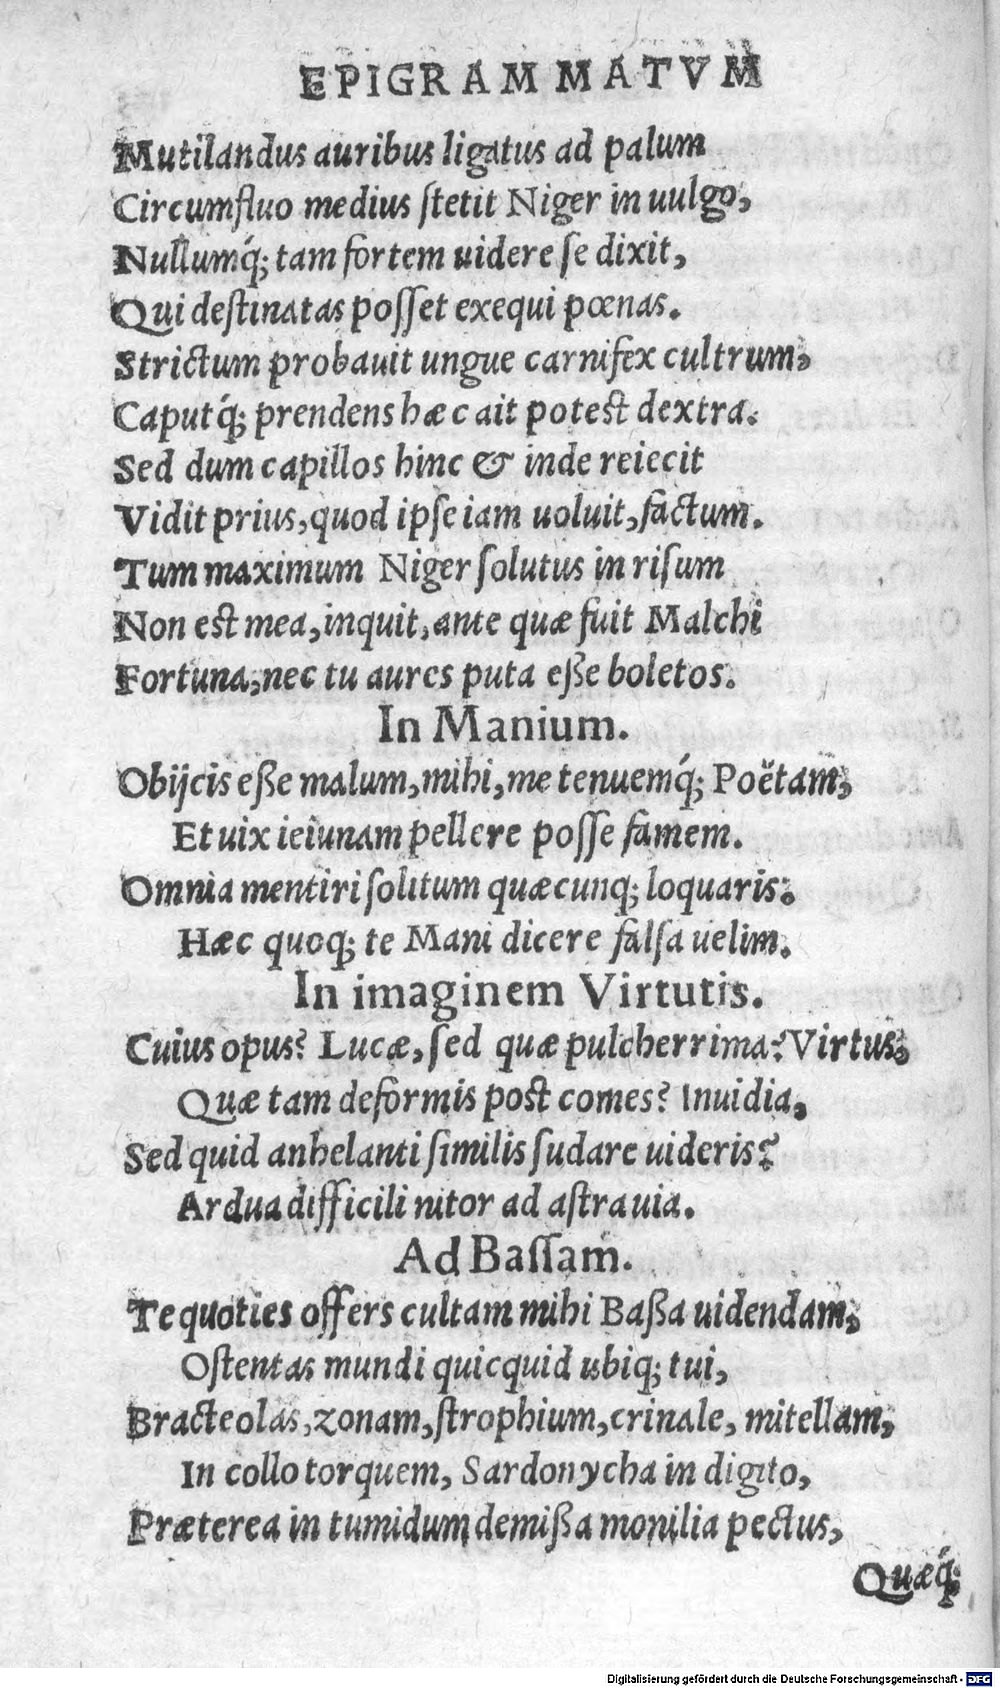 EPIGRAMMATVM
Mutilandus auribus ligatus ad palum
Circumfluo medius ſtetit Niger in uulgo,
Nullumq́; tam fortem uidere ſe dixit,
Qui deſtinatas poſſet exequi pœnas.
Strictum probauit ungue carnifex cultrum,
Caputq́; prendens hæc ait poteſt dextra.
Sed dum capillos hinc & inde reiecit
Vidit prius, quod ipſe iam uoluit, factum.
Tum maximum Niger ſolutus in riſum
Non eſt mea, inquit, ante quæ fuit Malchi
Fortuna, nec tu aures puta eße boletos.
In Manium.
Obijcis eße malum, mihi, me tenuemq́; Poëtam,
Et uix ieiunam pellere poſſe famem.
Omnia mentiri ſolitum quæcunq; loquaris.
Hæc quoq; te Mani dicere falſa uelim.
In imaginem Virtutis.
Cuius opus? Lucæ, ſed quæ pulcherrima? Virtus,
Quæ tam deformis poſt comes? Inuidia,
Sed quid anhelanti ſimilis ſudare uideris?
Ardua difficili nitor ad aſtra uia.
Ad Baſſam.
Te quoties offers cultam mihi Baßa uidendam,
Oſtentas mundi quicquid ubiq; tui,
Bracteolas, zonam, ſtrophium, crinale, mitellam,
In collo torquem, Sardonycha in digito,
Præterea in tumidum demißa monilia pectus,
Quæq́;
Digitalisierung gefördert durch die Deutsche Forschungsgemeinschaft - DFG